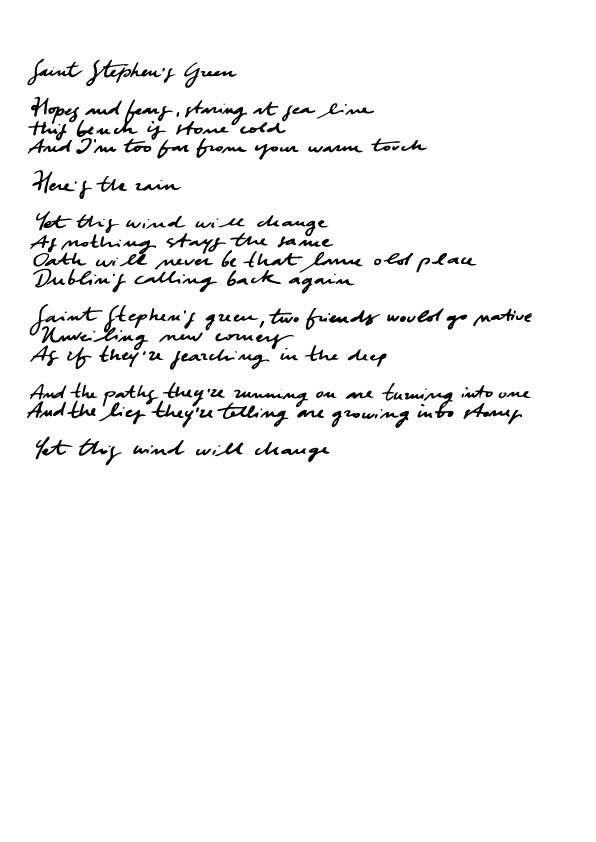 Saint Stephen's Green
Hopes and fears, staring at sea line
this bench is stone cold
And I'm too far from your warm touch
Here's the rain
Yet this wind will change
As nothing stays the same
Oath will never be that lame old place
Dublin's calling back again
Saint Stephen's green, two friends would go native
Unveiling new corners
As if they're searching in the deep
And the paths they're running on are turning into one
And the lies they're telling are growing into stones
Yet this wind will change